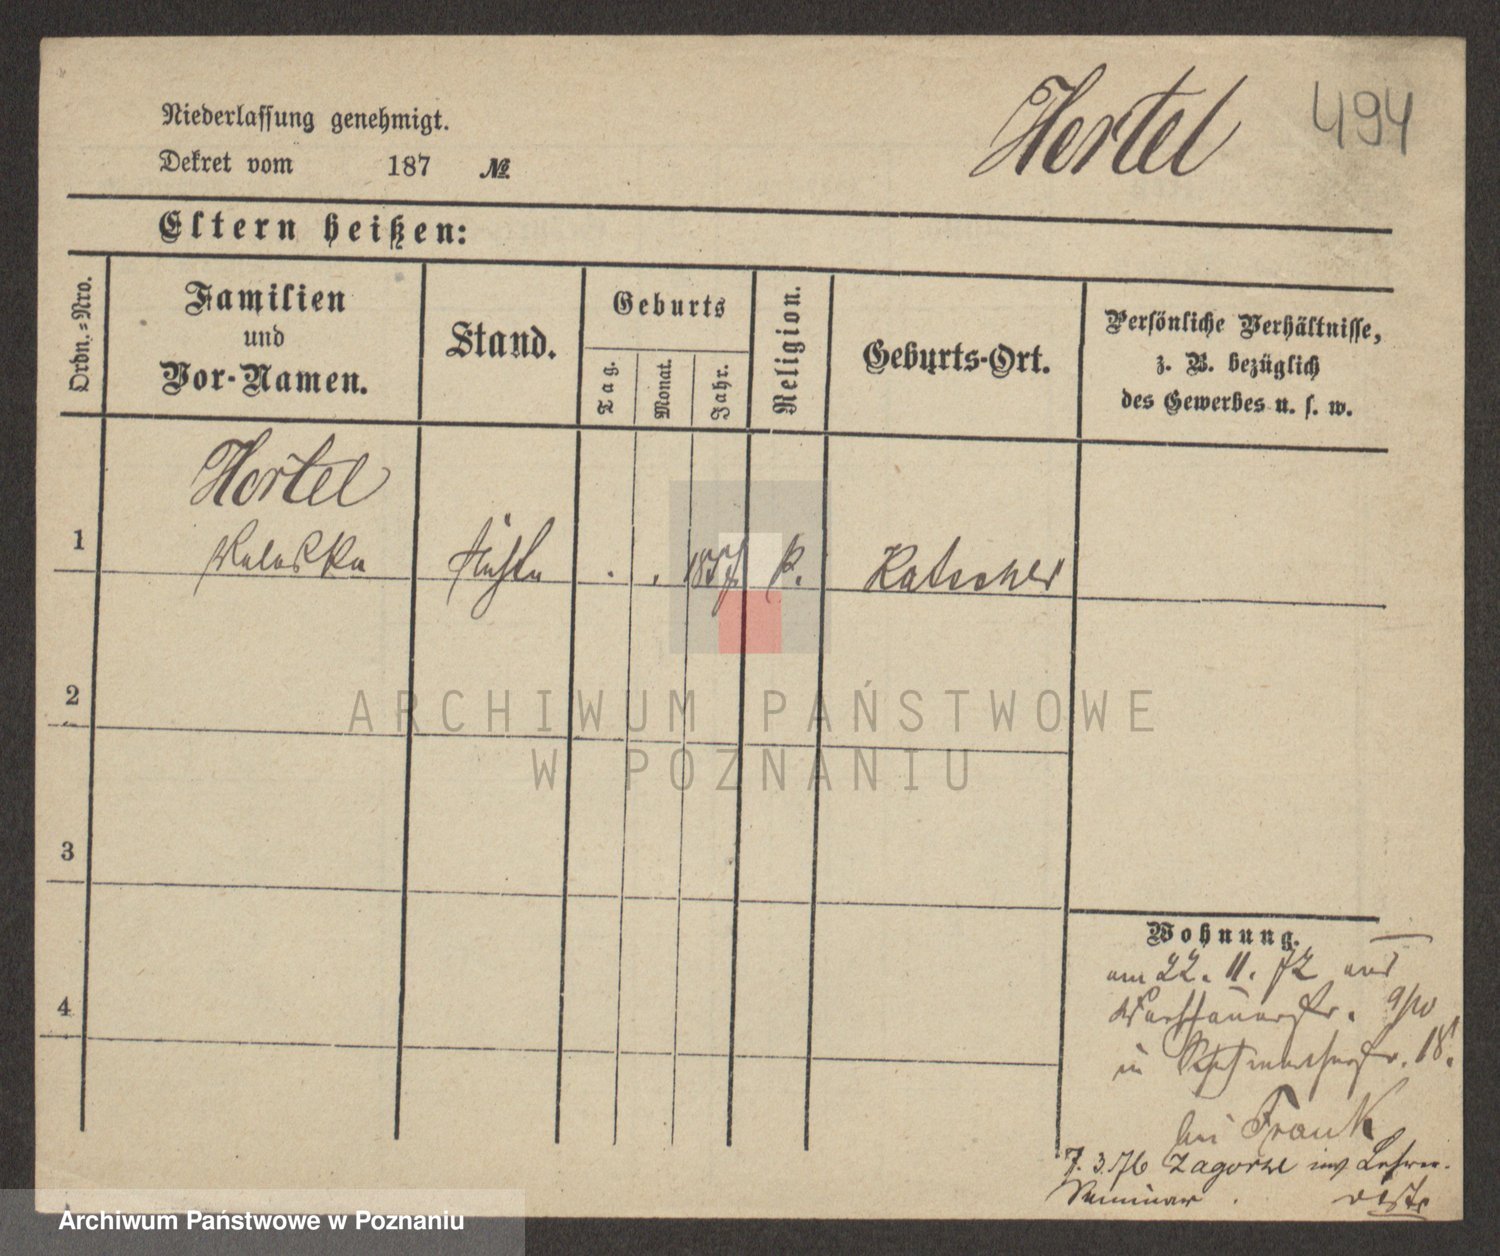 Niederlassung genehmigt.
Dekret vom 187 №
Hertel
494
Eltern heißen:
Ordn.-Nro.
Familien
und
Vor-Namen.
Stand.
Geburts
Tag.
Monat.
Jahr.
Religion.
Geburts-Ort.
Persönliche Verhältnisse,
z. B. bezüglich
des Gewerbes u. s. w.
Hertel
1 Waleska 1857 k. Katscher
2
ARCHIWUM PAŃSTWOWE
W POZNANIU
3
4
Wohnung.
am 22. 11. 72 aus
9/10
in 18.
bei Frank
7.3.76 Zagorze ins Lehrer-
Seminar.
Archiwum Państwowe w Poznaniu